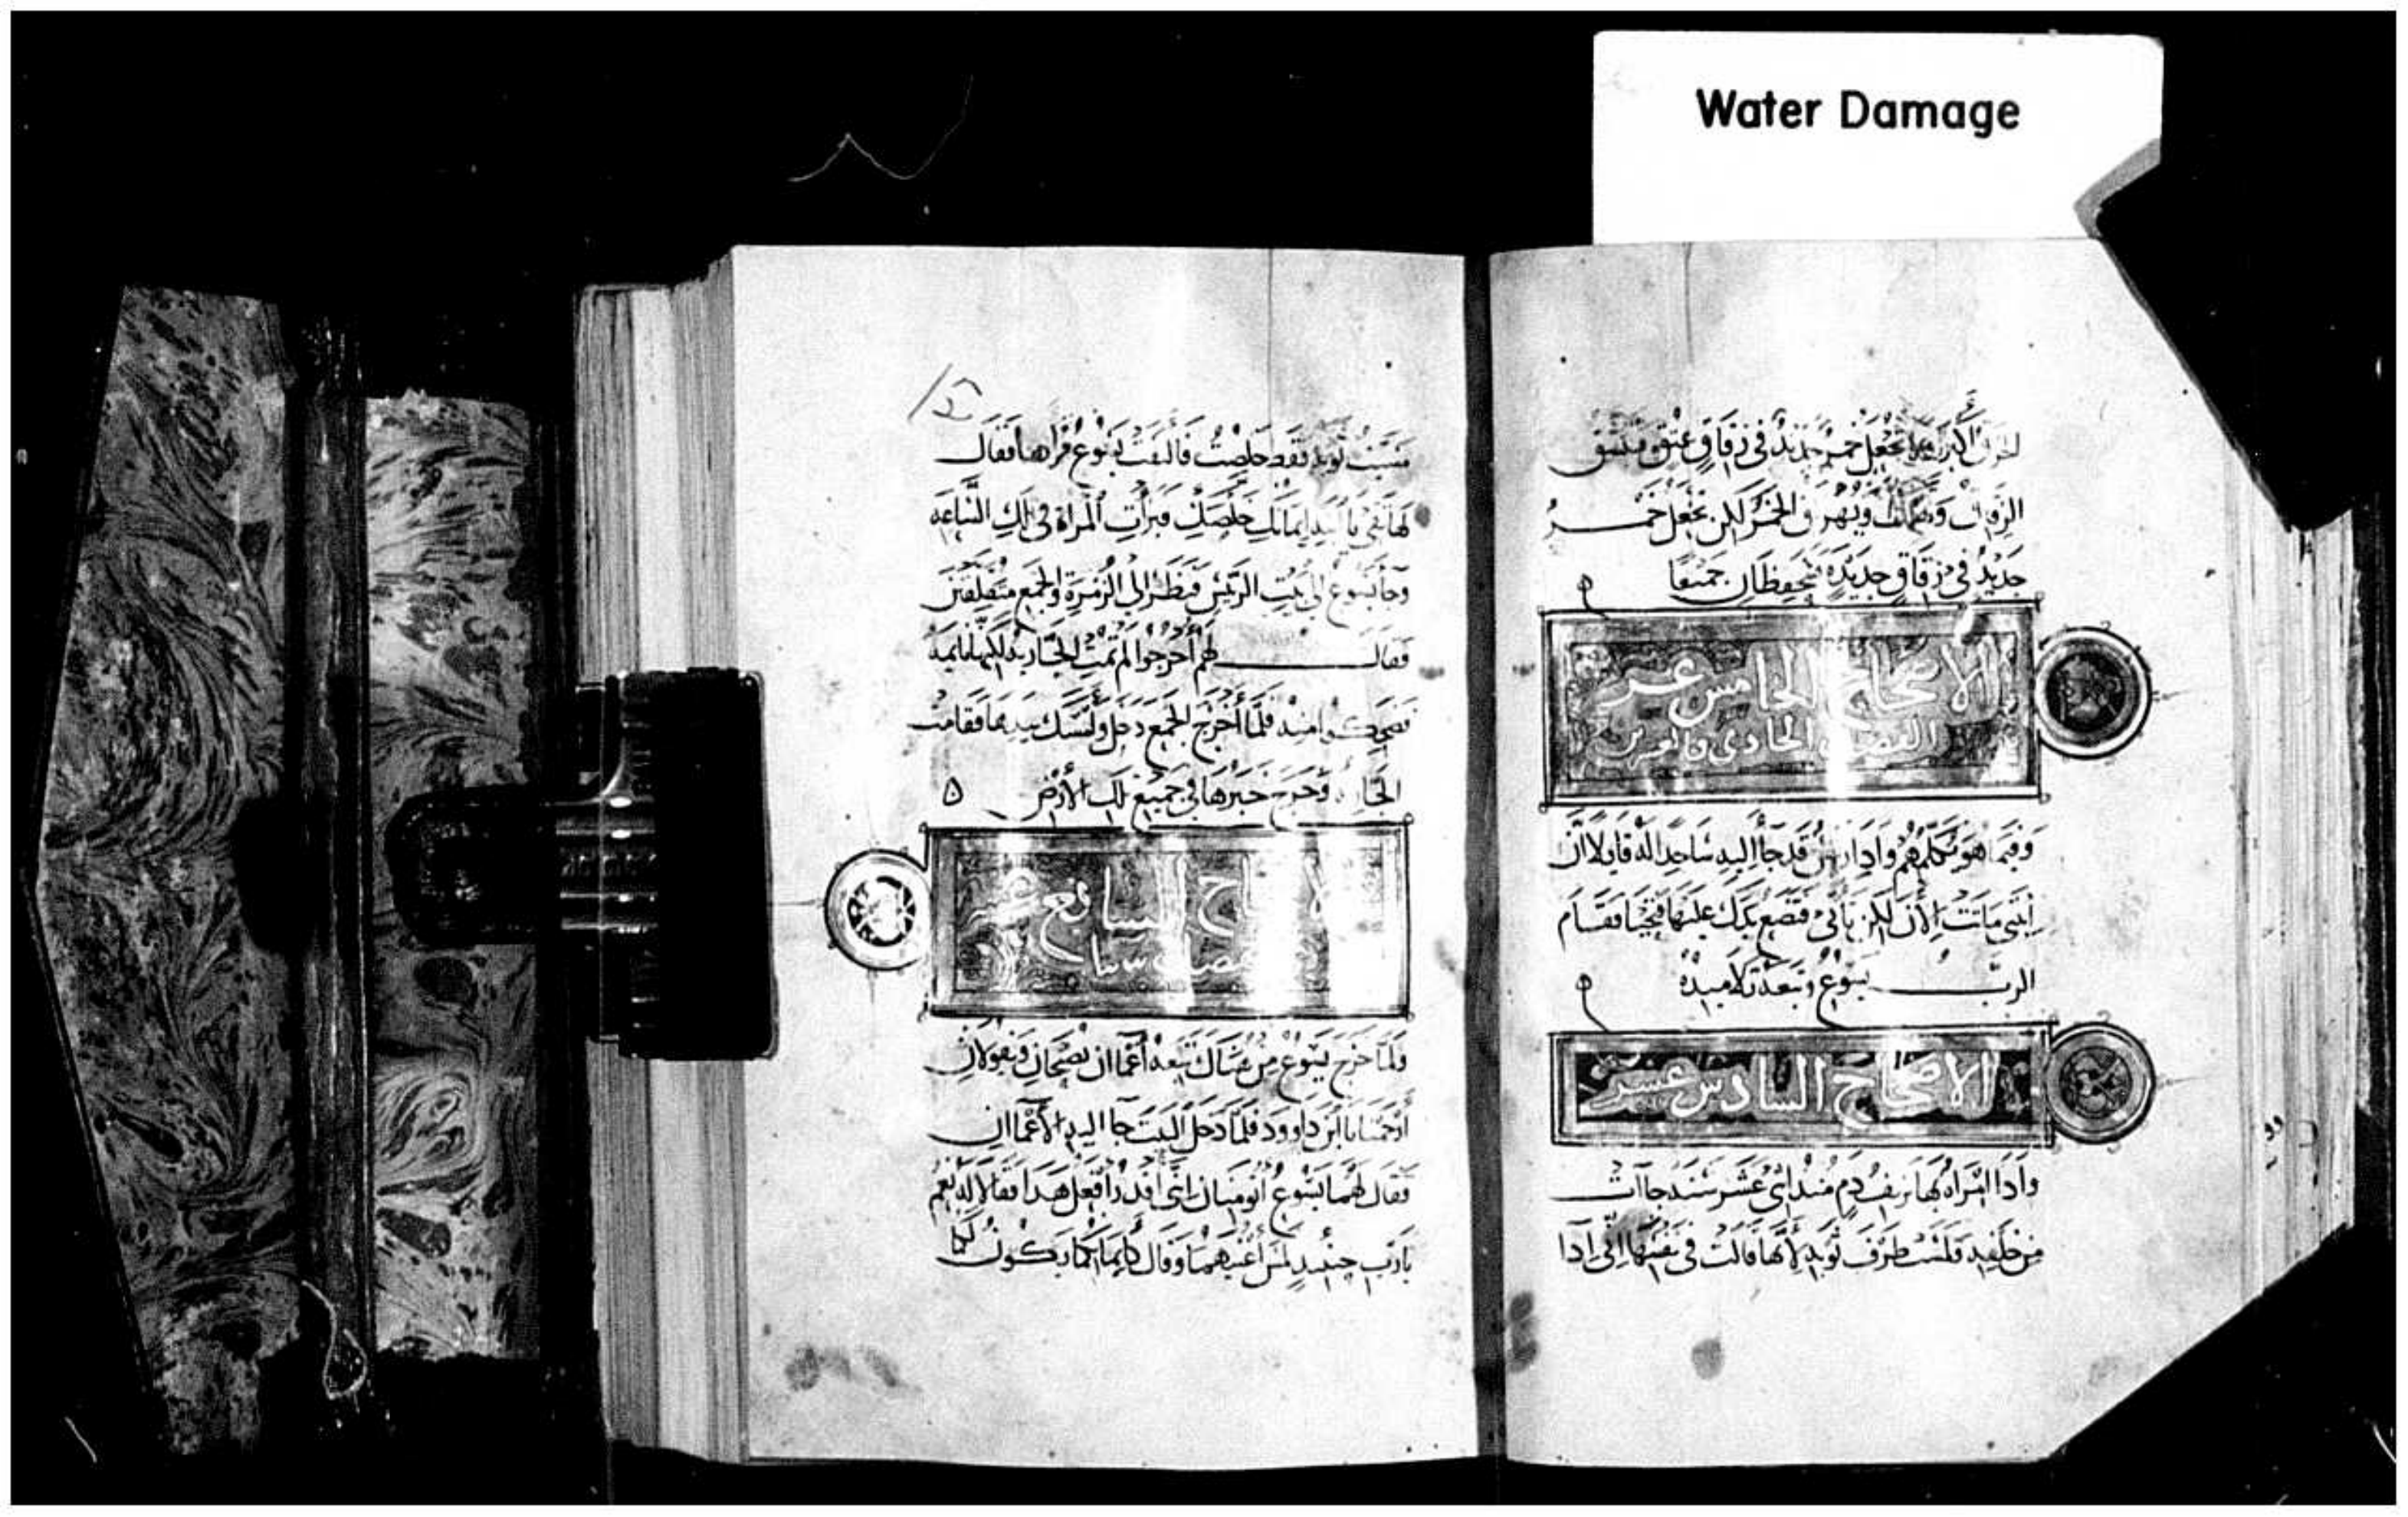 Water Damage
اكبر تجعل خمر جديد في زقاق عتق فتنشق
الزقاق ويهرق الخمر لكن تجعل خمر
جديد في زقاق جديده فيحفظان جميعا
الاصحاح الخامس عشر
الفصل الحادي والعشرين
وفيما هو يكلمهم واذا قد جا اليه ساجدا له قايلا ان
ابنتي ماتت الان لكن تاتي فتضع يدك عليها فتحيا فقام
الرب يسوع وتبعه تلاميده
الاصحاح السادس عشر
واذا امراه بها نزيف دم مند اثني عشر سنه جاات
من خلفه ولمست طرف ثوبه لانها قالت في نفسها اني ادا
مسست ثوبه فقط خلصت فالتفت يسوع فراها فقال
لها ثقي يا ابنه ايمانك خلصك فبرات المراة في تلك الساعه
وجا يسوع الى بيت الرييس فنظر الى الزمرة والجمع متقلقين
فقال لهم اخرجوا لم تمت الجاريه لكنها نايمه
فضحكوا منه فلما اخرج الجمع دخل ومسك بيدها فقامت
وخرج خبرها في جميع تلك الارض
السابع عشر
ولما خرج يسوع من هناك تبعه اعماان يصيحان ويقولان
ارحمنا يا ابن داوود فلما دخل البيت جاا اليه الاعماان
فقال لهما يسوع اتومنان انني اقدر افعل هدا فقالا له نعم
يارب حينيد لمس اعينهما وقال كايمانكما يكون لكما